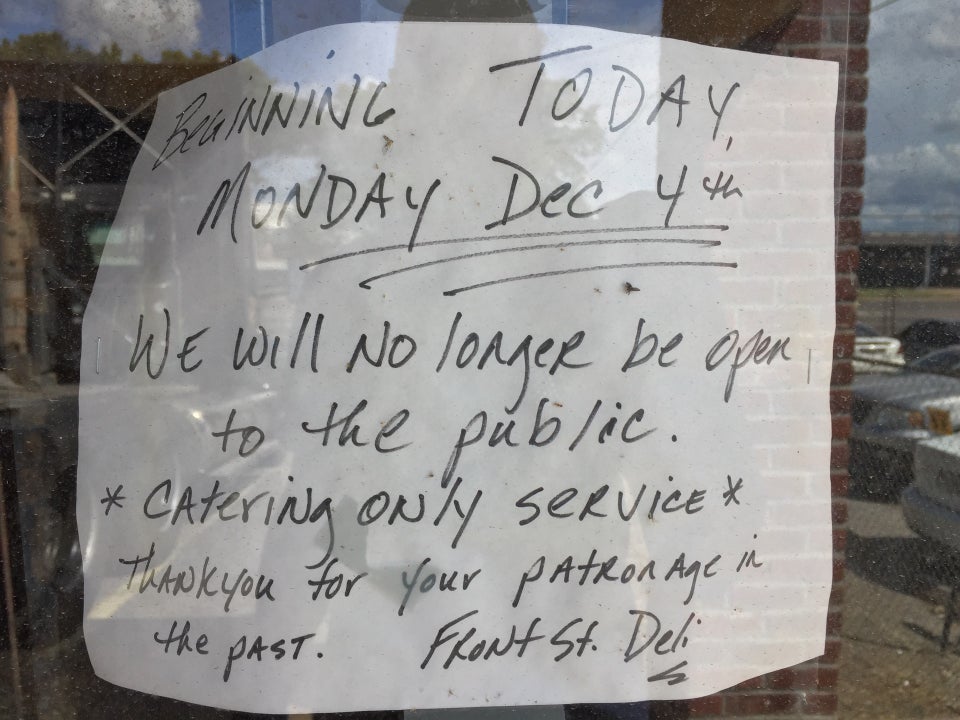 Beginning Today,
Monday Dec 4th
We will no longer be open
to the public.
* Catering only service *
Thankyou for your patronage in
the past. Front St. Deli